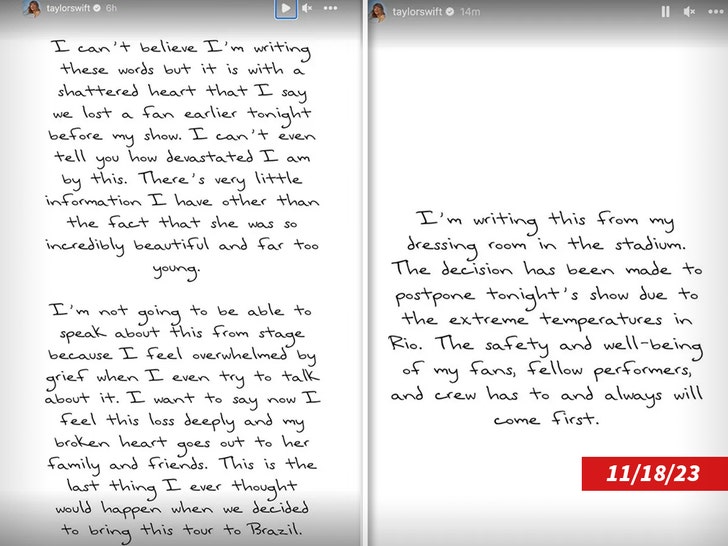 taylorswift 6h
I can't believe I'm writing
these words but it is with a
shattered heart that I say
we lost a fan earlier tonight
before my show. I can't even
tell you how devastated I am
by this. There's very little
information I have other than
the fact that she was so
incredibly beautiful and far too
young.
I'm not going to be able to
speak about this from stage
because I feel overwhelmed by
grief when I even try to talk
about it. I want to say now I
feel this loss deeply and my
broken heart goes out to her
family and friends. This is the
last thing I ever thought
would happen when we decided
to bring this tour to Brazil.
taylorswift 14m
I'm writing this from my
dressing room in the stadium.
The decision has been made to
postpone tonight's show due to
the extreme temperatures in
Rio. The safety and well-being
of my fans, fellow performers,
and crew has to and always will
come first.
11/18/23